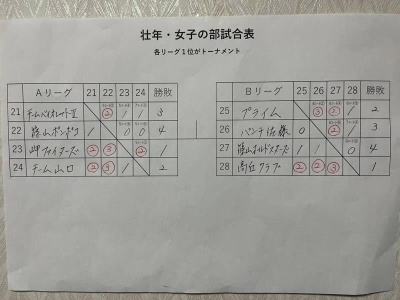 壮年・女子の部試合表
各リーグ1位がトーナメント
Aリーグ 21 22 23 24 勝敗
21 ② 1 1 3
22 篠山ポンポコ 1 0 0 4
23 岬ファイターズ ② ③ ② 1
24 チーム山口 ② ③ 1 2
Bリーグ 25 26 27 28 勝敗
25 プライム ③ ② 1 2
26 パンチ佐藤 0 ② 1 3
27 篠山オールドスターズ 1 1 0 4
28 高丘クラブ ② ② ③ 1